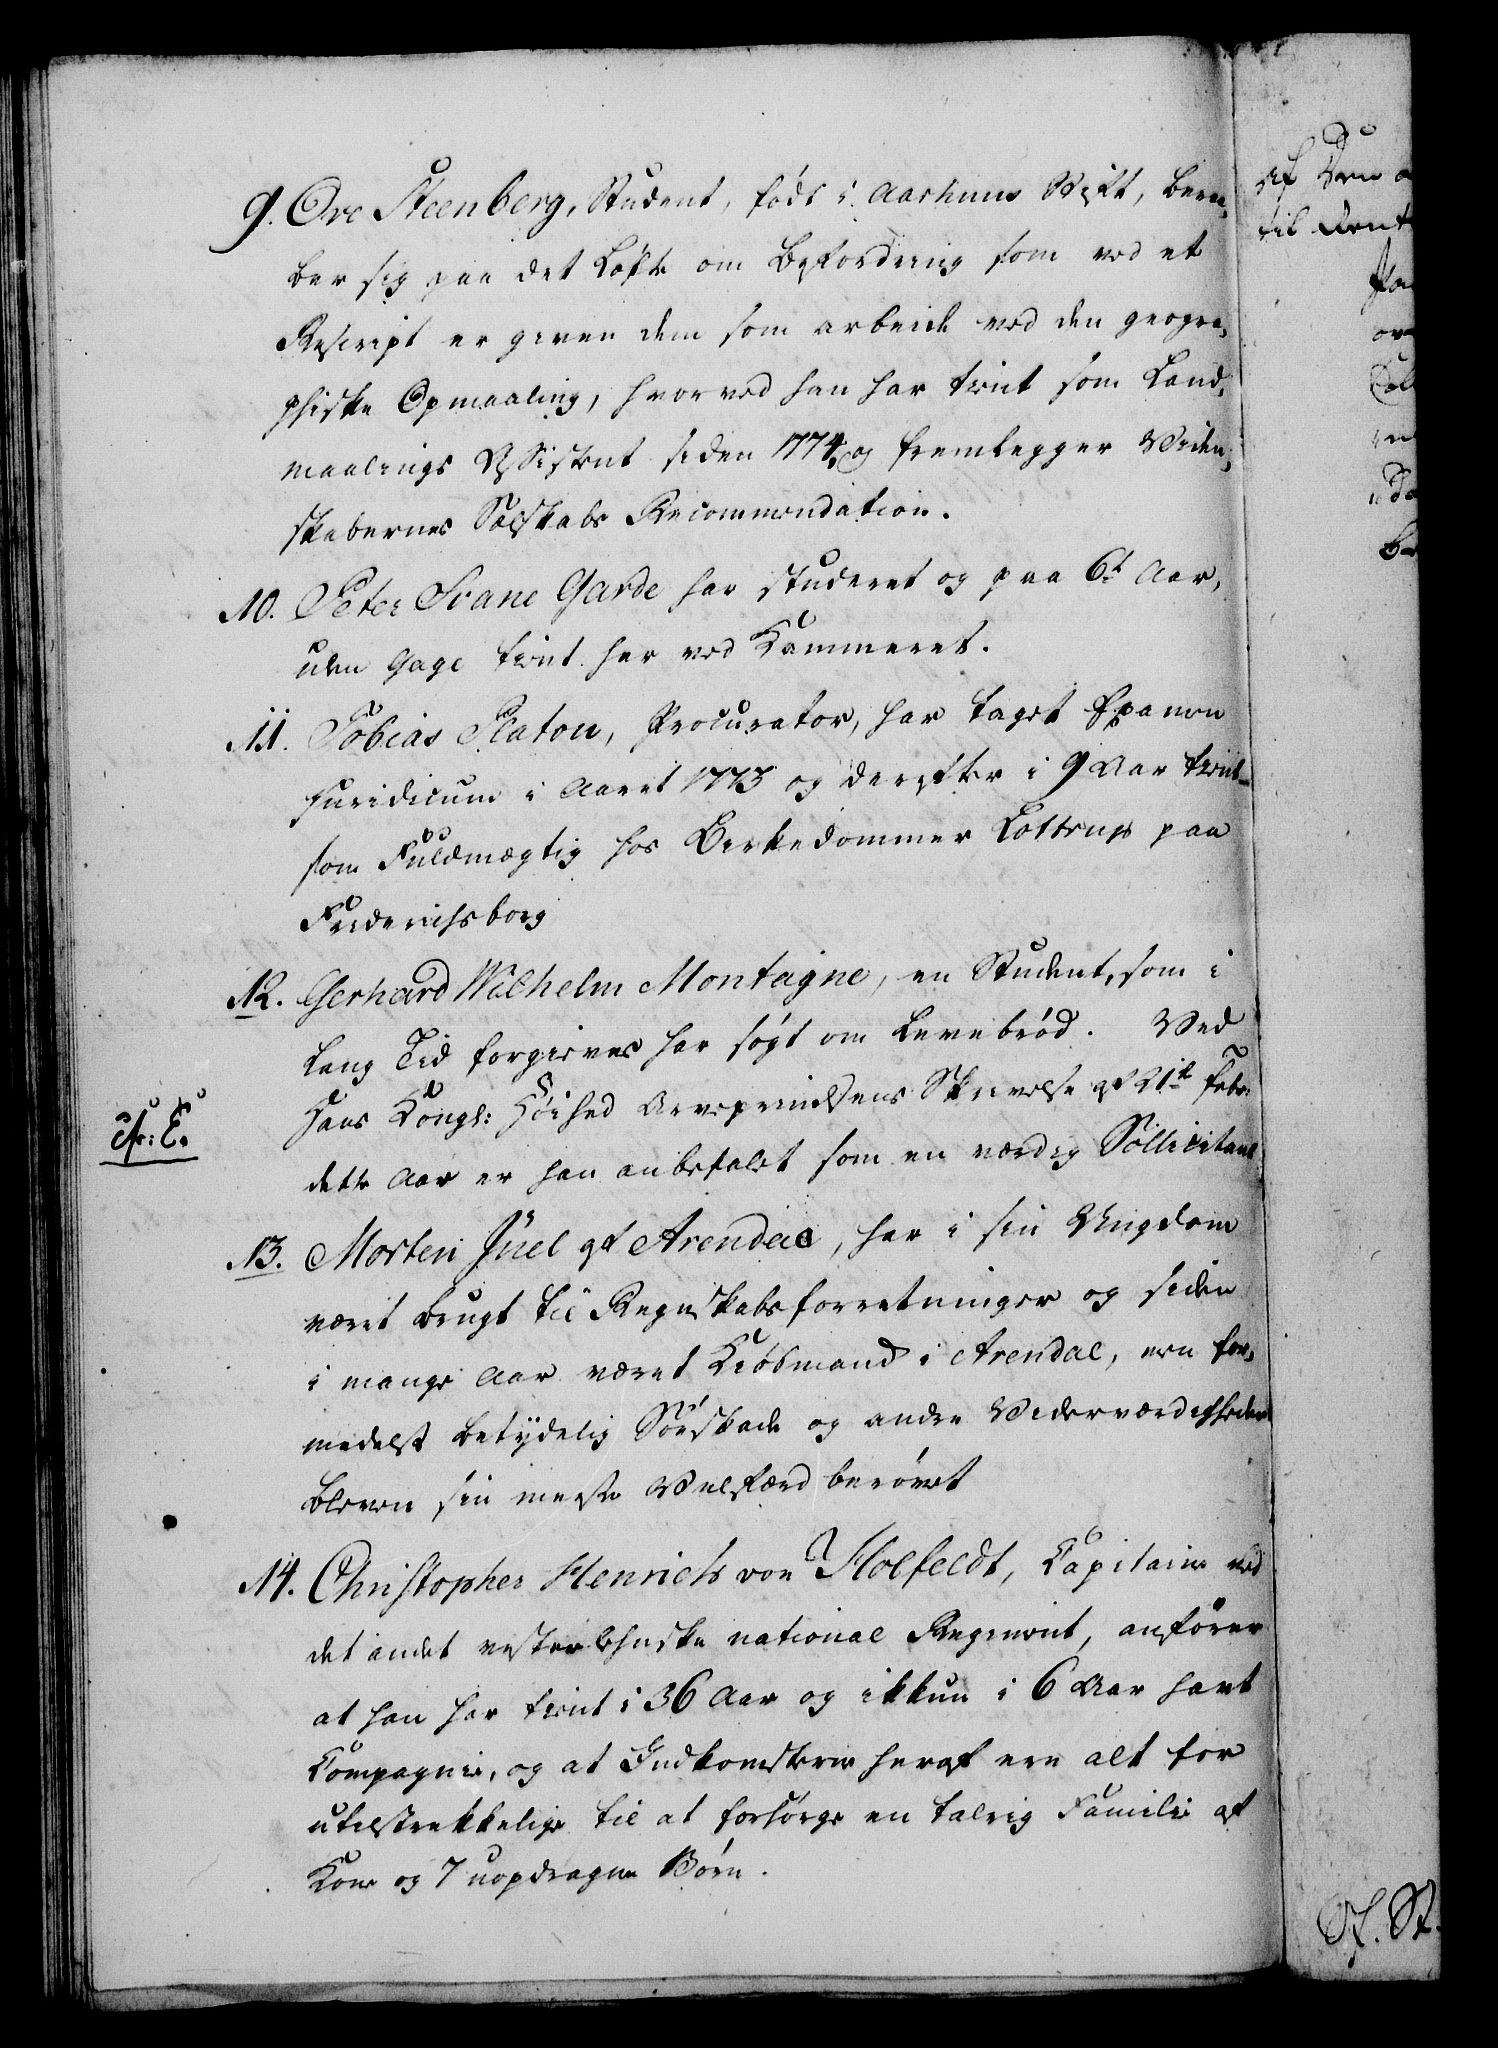 9. Ove Steenberg, Student, født i Aarhuus Stift, beraa-
ber sig paa det Løfte om Befordring som ved et
Rescript er given dem som arbeide ved den geogra-
phiske Opmaaling, hvorved han har tient som Land-
maalings Assistent siden 1774, og fremlegger Viden-
skabernes Selskabs Recommendation.
10. Peter Svane Garde har studeret og paa 6t Aar,
uden Gage tient her ved Kammeret.
11. Tobias Platou, Procurator, har taget Examen
juridicum i Aaret 1773 og derefter i 9 Aar tient
som Fuldmægtig hos Birkedommer Lottrup paa
Friderichsborg
12. Gerhard Wilhelm Montagne, en Student, som i
lang Tid forgieves har søgt om Levebrød. Ved
Hans Kongl: Høihed Arveprindsens Skrivelse af 21de Febr:
dette Aar er han anbefalet som en værdig Sollicitant
13. Morten Juel af Arendal, har i sin Ungdom
været brugt til Regnskabsforretninger og siden
i mange Aar været Kiøbmand i Arendal, men for-
medelst betydelig Søeskade og andre Vederværdigheder
bleven sin meste Velfærd berøvet
14. Christopher Henrich von Holfeldt, Capitain ved
det andet vesterlehnske national Regiment, anfører
at han har tient i 36 Aar og ikkun i 6 Aar havt
Compagnie, og at Indkomsterne heraf ere alt for
utilstrekkelige til at forsørge en talrig Familie af
Kone og 7 uopdragne Børn.
Af Den
til Rent